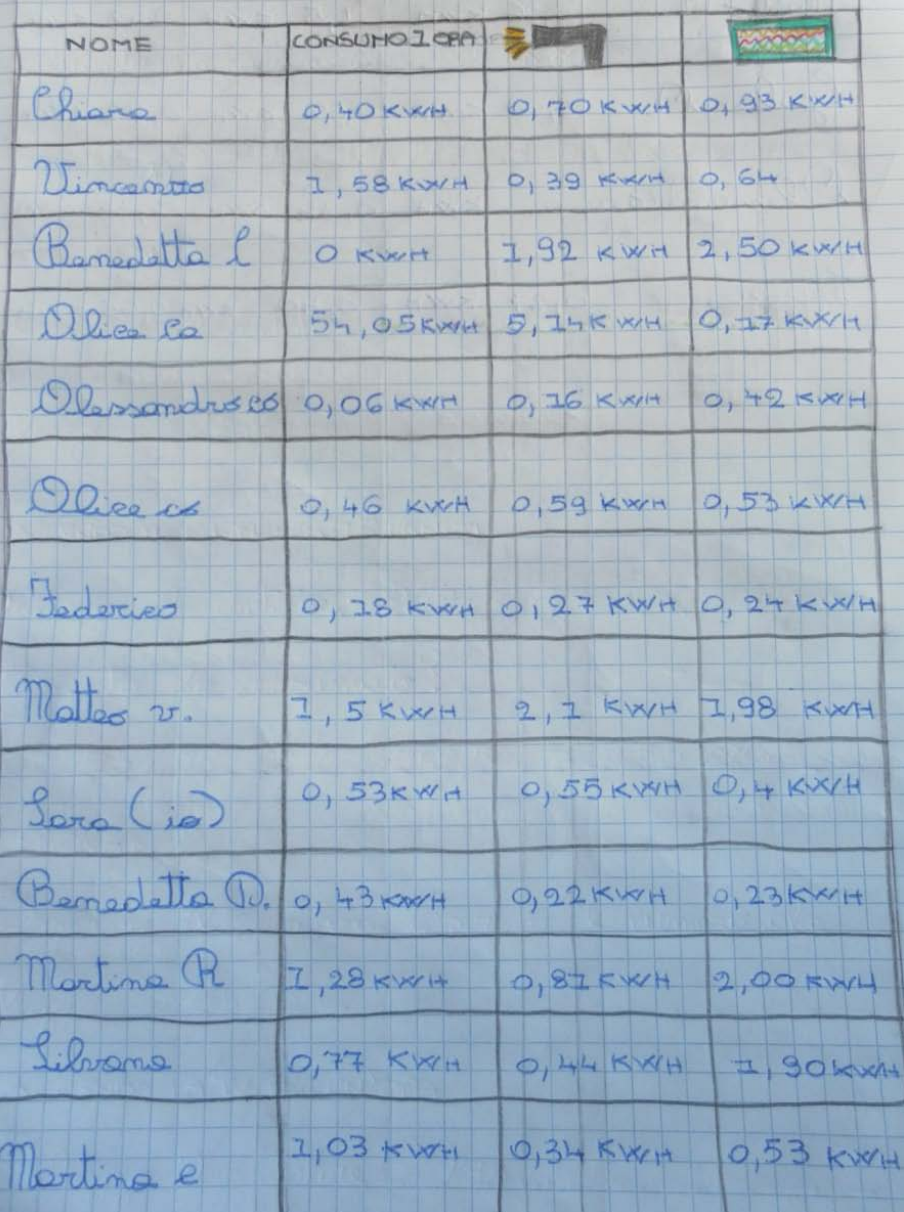 NOME CONSUMO 1 ORA
Chiara 0,40 KWH 0,70 KWH 0,93 KWH
Vincenzo 1,58 KWH 0,39 KWH 0,64
Benedetta l 0 KWH 1,92 KWH 2,50 KWH
Alice Ca 54,05 KWH 5,14 KWH 0,17 KWH
Alessandro co 0,06 KWH 0,16 KWH 0,42 KWH
Alice cs 0,46 KWH 0,59 KWH 0,53 KWH
Federico 0,18 KWH 0,27 KWH 0,24 KWH
Matteo v. 1,5 KWH 2,1 KWH 1,98 KWH
Sara (io) 0,53 KWH 0,55 KWH 0,4 KWH
Benedetta D. 0,43 KWH 0,22 KWH 0,23 KWH
Martina R 1,28 KWH 0,81 KWH 2,00 KWH
Silvana 0,77 KWH 0,44 KWH 1,90 KWH
Martina e 1,03 KWH 0,34 KWH 0,53 KWH